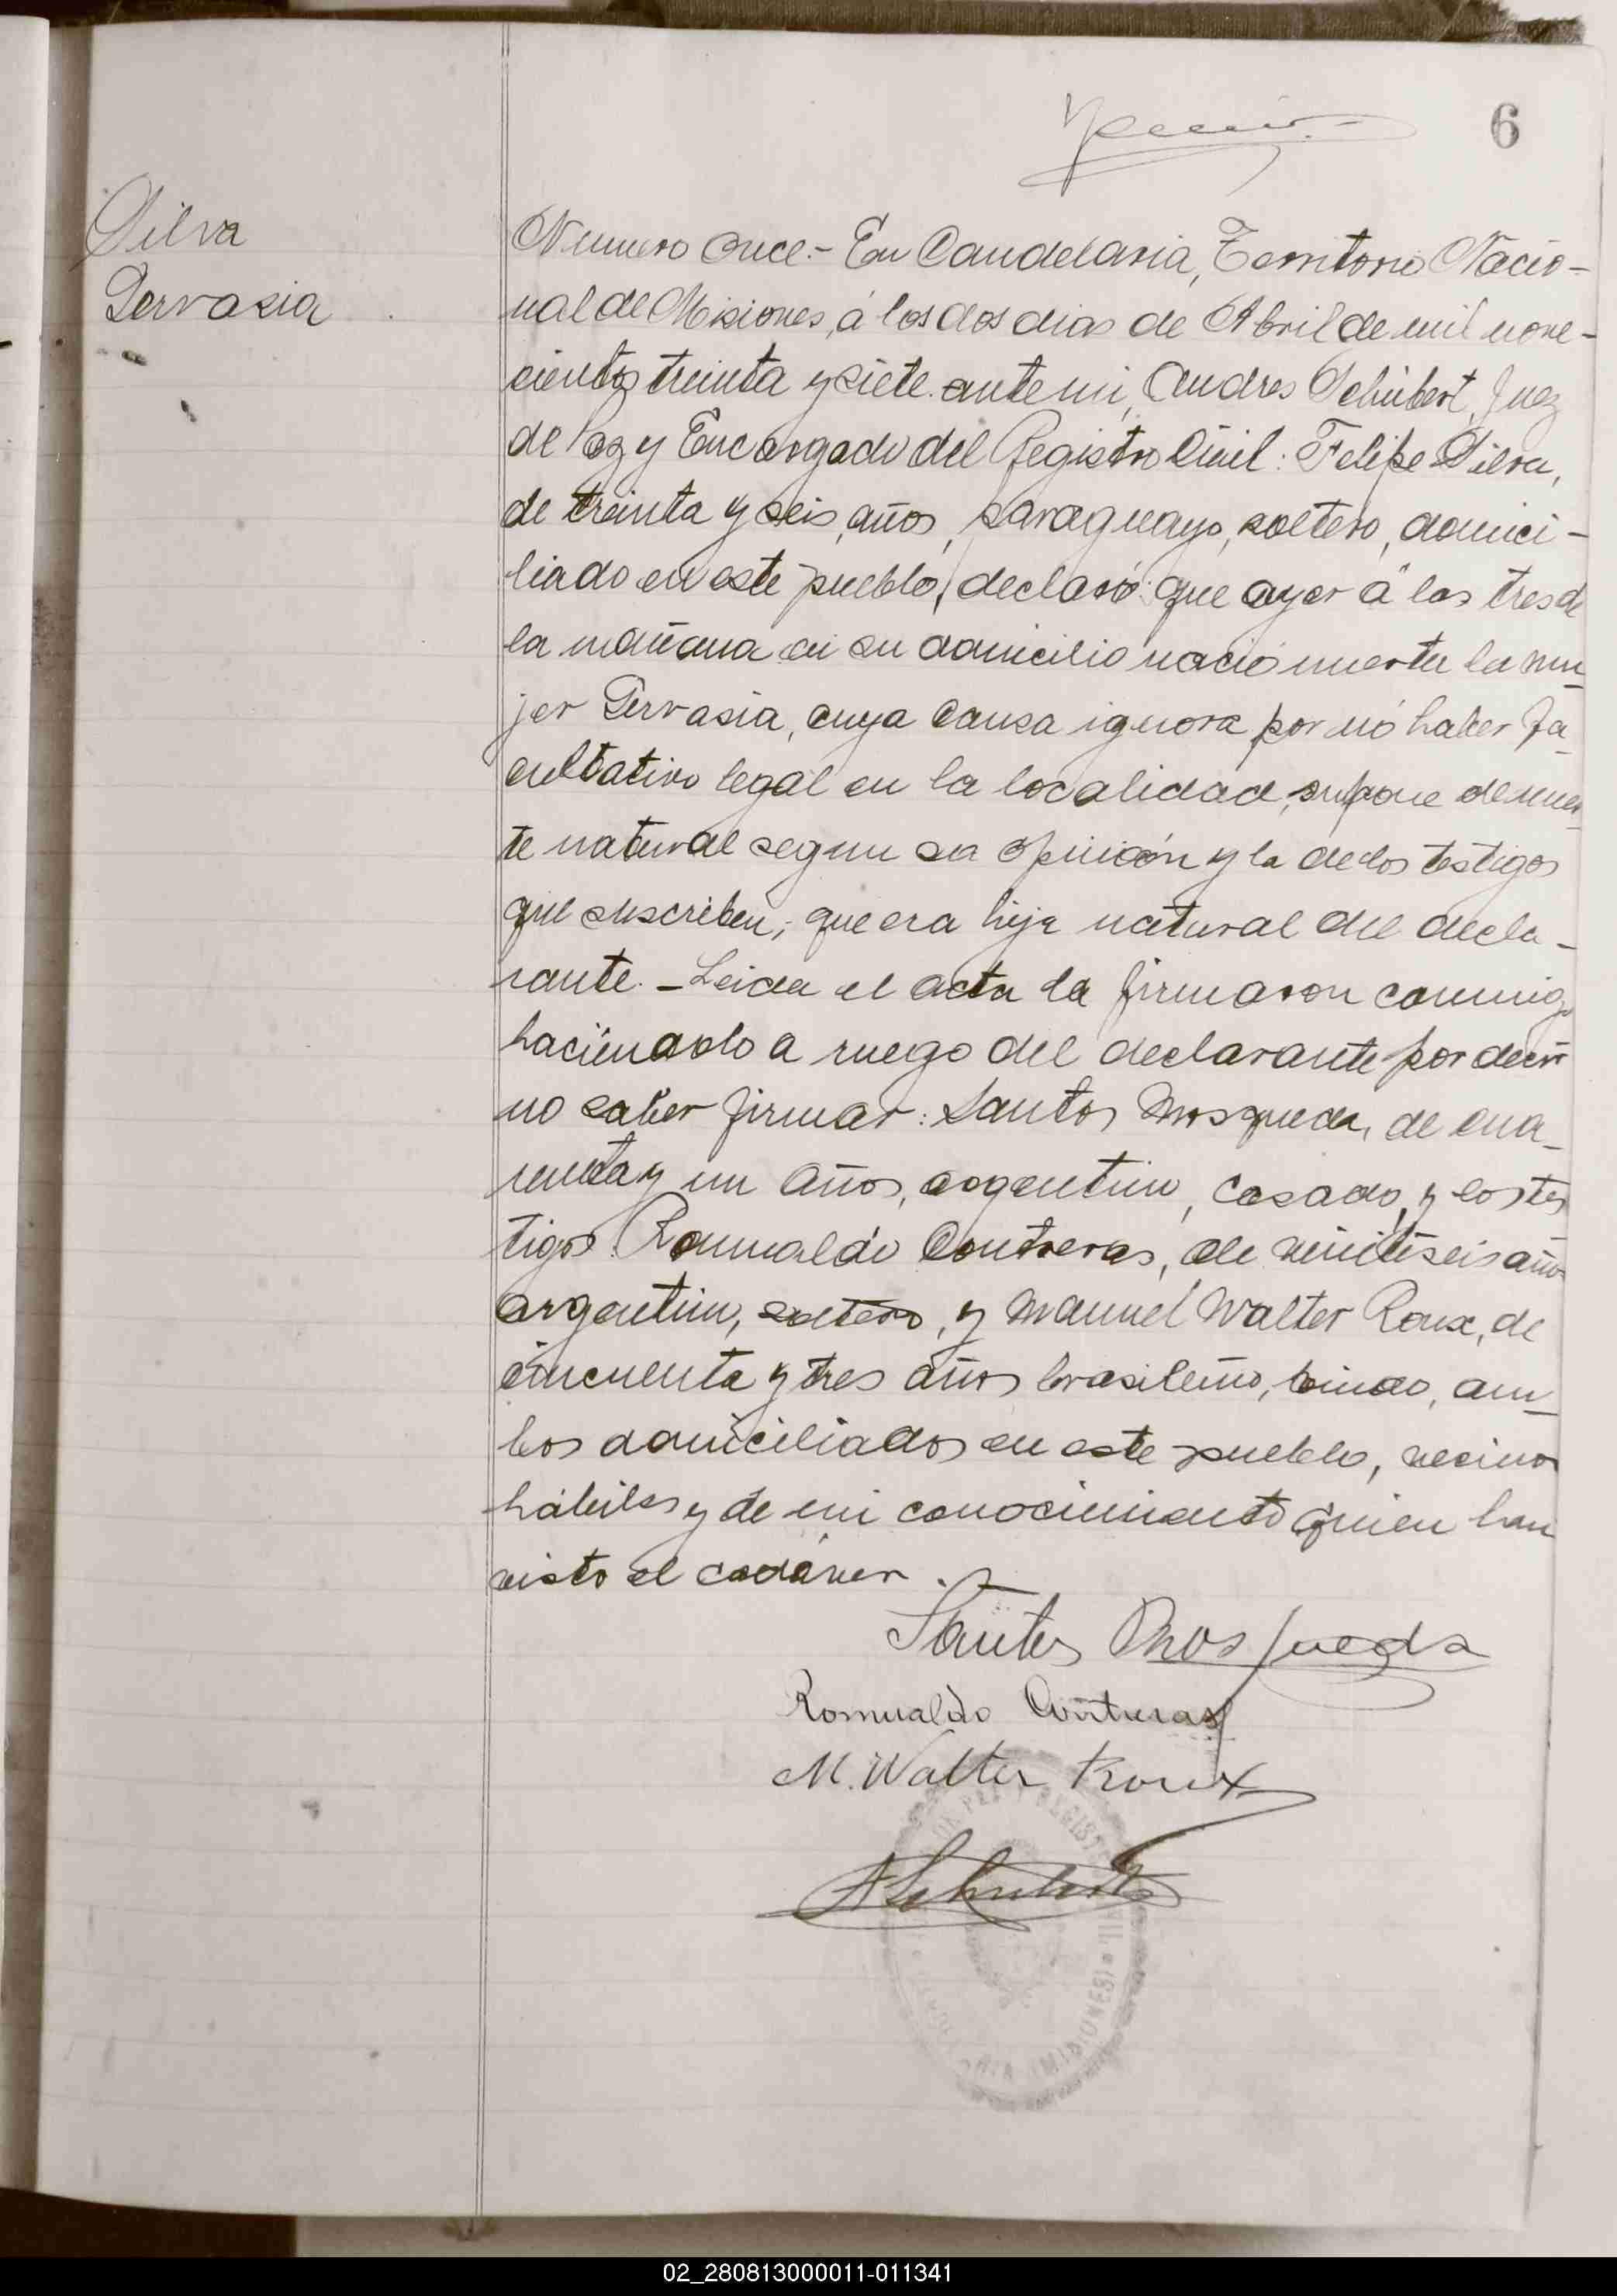 6
Silva
Gervasia
Numero Once.- En Candelaria, Territorio Nacio-
nal de Misiones, á los dos dias de Abril de mil nove-
cientos treinta y siete. ante mi, Andres Schubert, Juez
de Paz y Encargado del Registro Civil: Felipe Silva,
de treinta y seis, años, paraguayo, soltero, domici-
liado en este pueblo, declaró: que ayer á las tres de
la mañana en su domicilio nació muerta la mu_
jer Gervasia, cuya causa ignora por nó haber fa_
cultativo legal en la localidad, supone de muer_
te natural segun su opinión y la de los testigos
que suscriben; que era hija natural del decla-
rante. - Leida el acta la firmaron conmigo
haciendolo a ruego del declarante por decir
no saber firmar: Santos Mosqueda, de cua_
renta y un años, argentino, casado, y los tes_
tigos: Romualdo Contreras, de veintiseis años
argentino, soltero, y Manuel Walter Roux, de
cincuenta y tres años brasileño, viudo, am_
bos domiciliados en este pueblo, vecinos
hábiles y de mi conocimiento quien han
visto el cadáver.-
Santos Mosqueda
Romualdo Contreras
M. Walter Roux
ASchubert
02_280813000011-011341